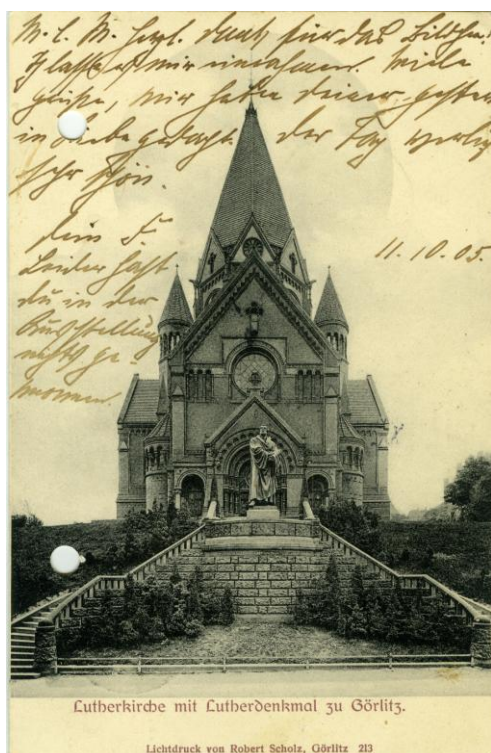 M. l. M. Herzl. Dank für das Bildchen!
mir einnahmen. Viele
Grüße, wir haben deiner gestern
in Liebe gedacht. Der Tag verlief
sehr schön.
dein F.
Leider hast
du in der
Ausstellung
nichts ge-
wonnen.
11.10.05.
Lutherkirche mit Lutherdenkmal zu Görlitz.
Lichtdruck von Robert Scholz, Görlitz 213